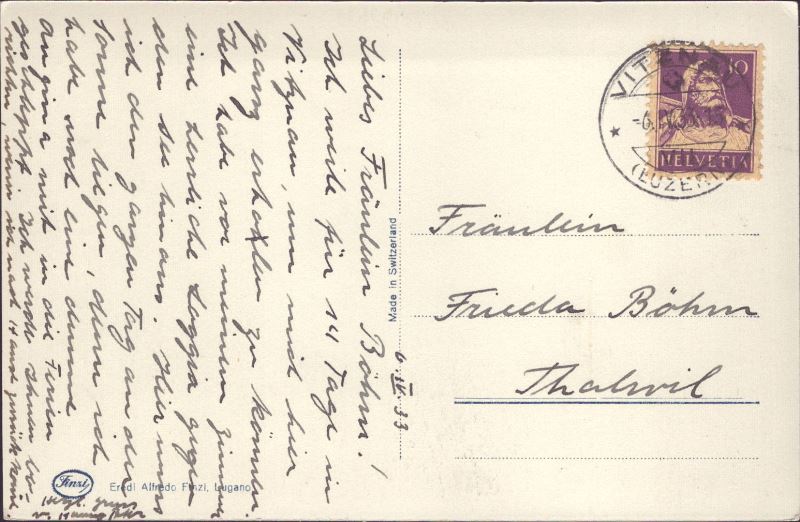 6. IV. 33
Liebes Fräulein Böhm!
Ich weile für 14 Tage in
Vitznau, um mich hier
ganz erholen zu können.
Ich habe vor meinem Zimmer
eine herrliche Loggia gegen
den See hinaus. Hier muss
ich den ganzen Tag an der
Sonne liegen, denn ich
habe
an gina mit in die Ferien
geschleppt. Ich werde Ihnen be-
richten, wenn ich nach 14 zurück
Herzl. Gruss
v.
Finzi
Eredi Alfredo Finzi, Lugano
Made in Switzerland
VITZNAU
(LUZERN)
10
HELVETIA
Fräulein
Frieda Böhm
Thalwil